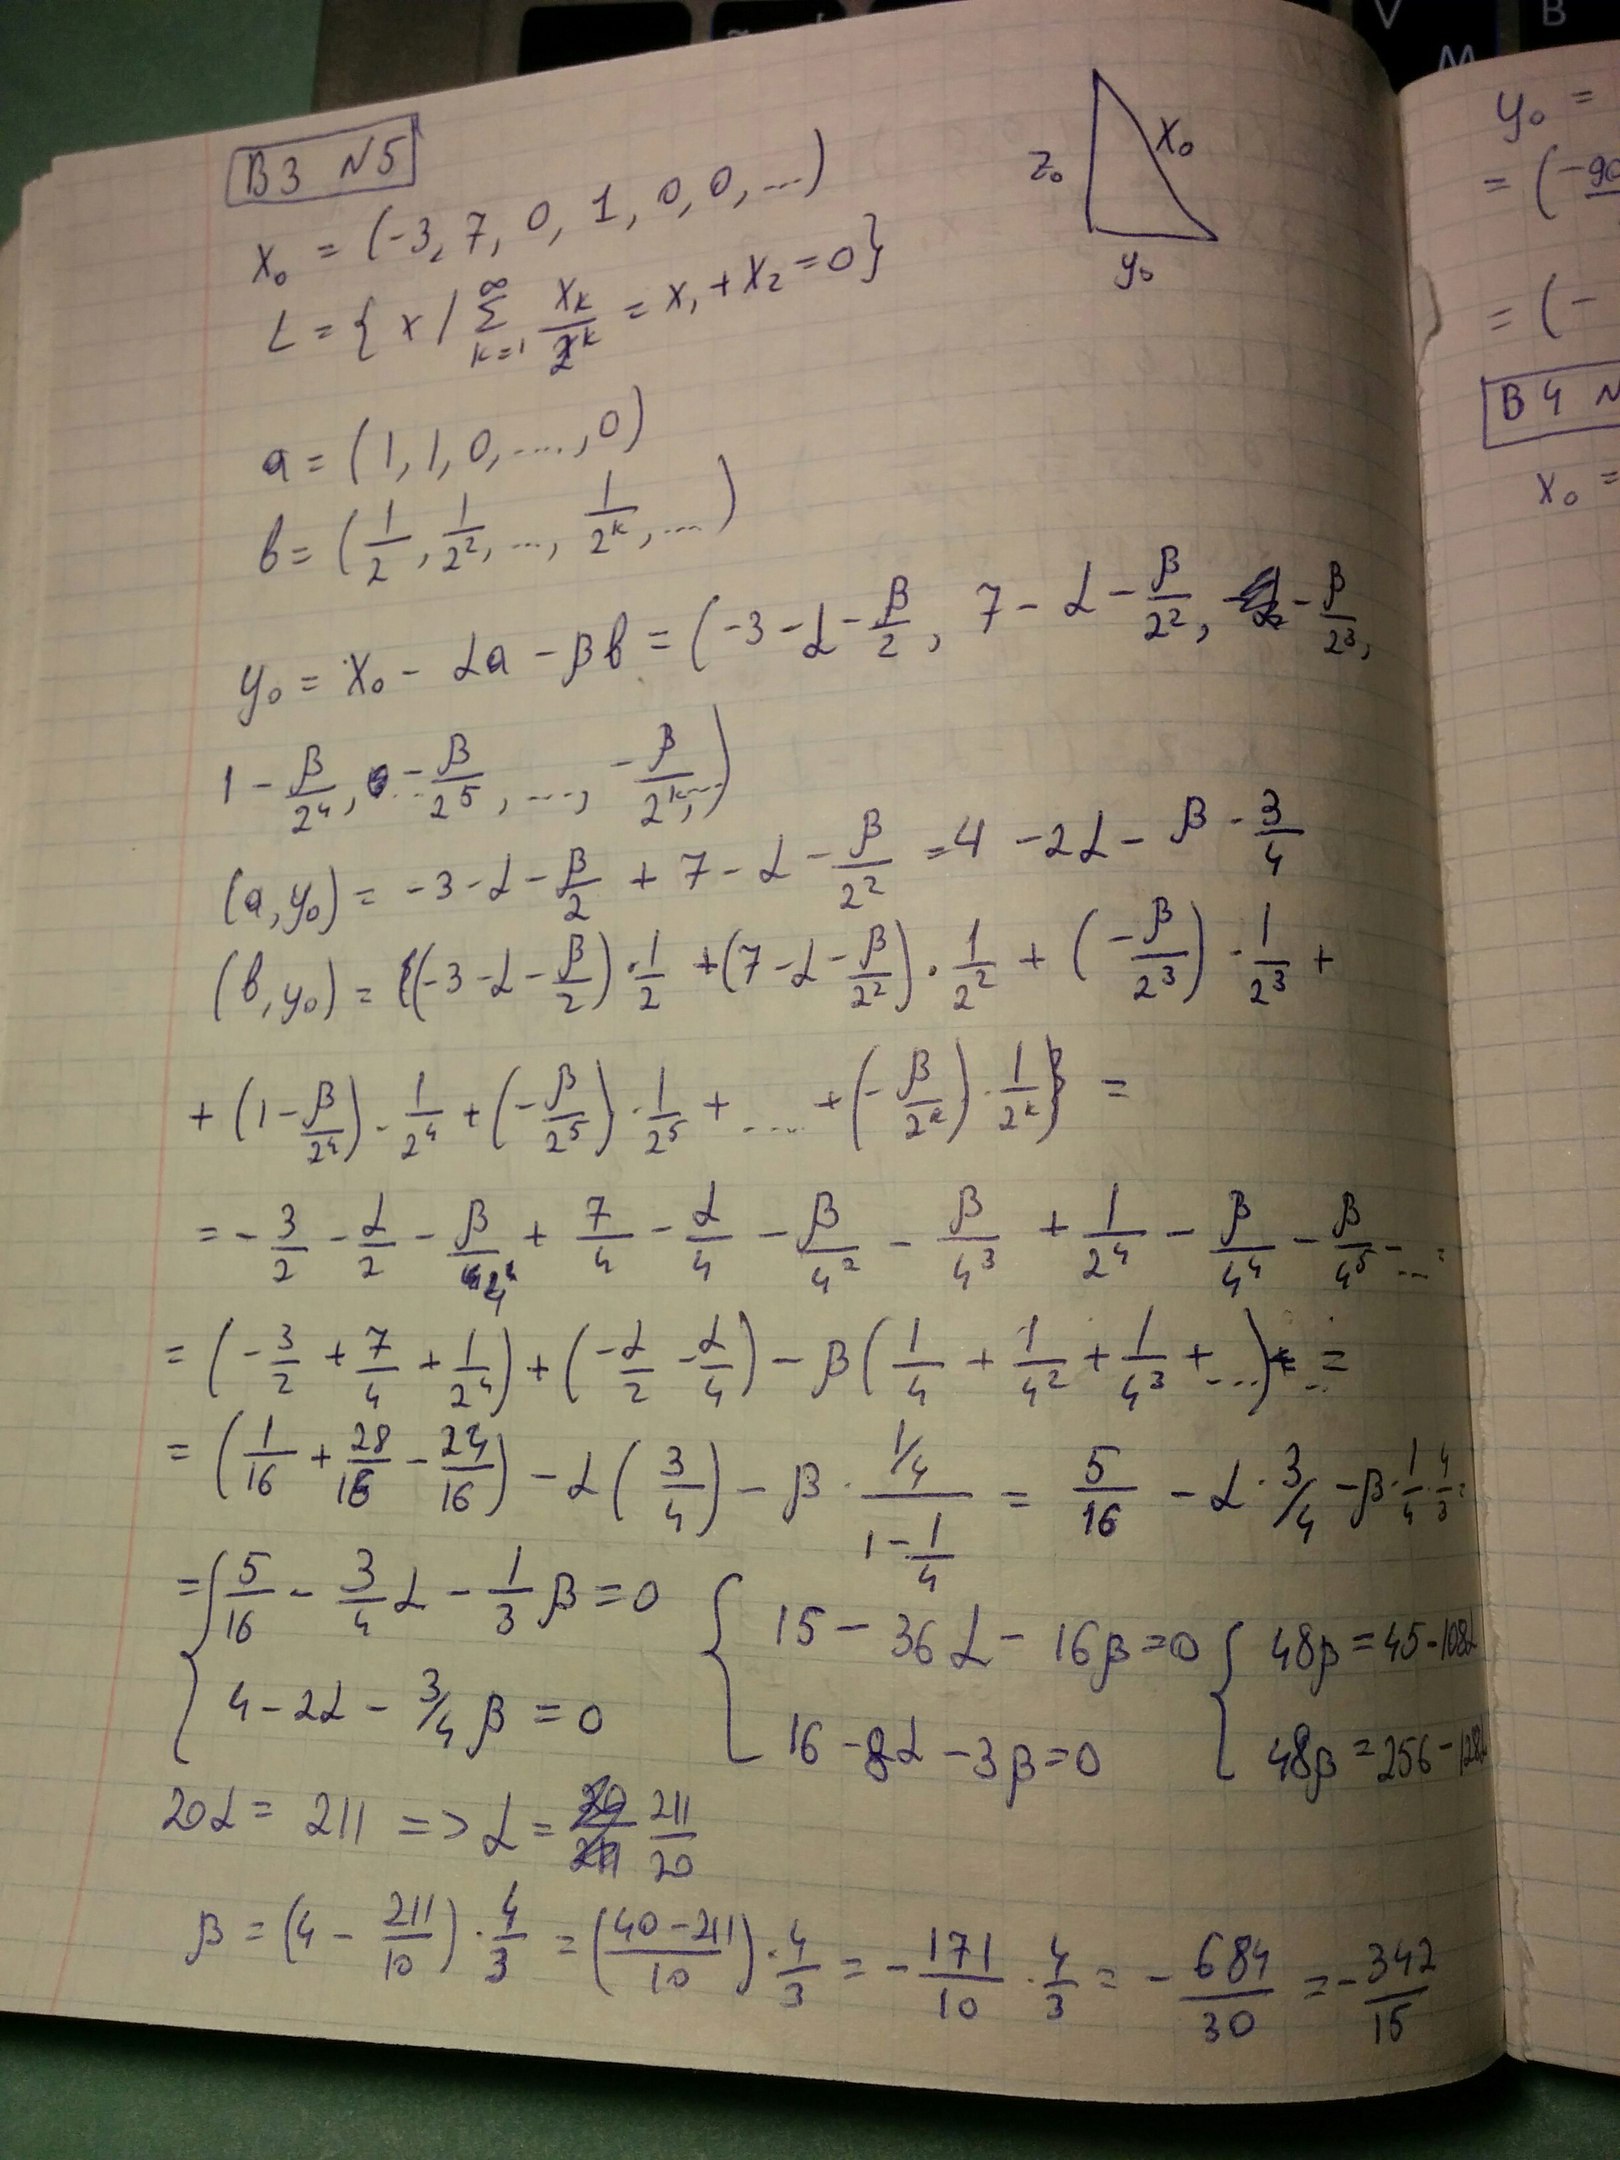 В3 N5
x₀ = (-3, 7, 0, 1, 0, 0, ...)
z₀ x₀ y₀
L = { x / ∑_{k=1}^{∞} x_k/2^k = x₁ + x₂ = 0}
a = (1, 1, 0, ...., 0)
b = (1/2, 1/2², ..., 1/2^k, ...)
y₀ = x₀ - αa - βb = (-3 - α - β/2, 7 - α - β/2², -β/2³,
1 - β/2⁴, -β/2⁵, ...., -β/2^k, ...)
(a, y₀) = -3 - α - β/2 + 7 - α - β/2² = 4 - 2α - β · 3/4
(b, y₀) = ((-3 - α - β/2) · 1/2 + (7 - α - β/2²) · 1/2² + (-β/2³) · 1/2³ +
+ (1 - β/2⁴) · 1/2⁴ + (-β/2⁵) · 1/2⁵ + .... + (-β/2^k) · 1/2^k} =
= -3/2 - α/2 - β/4 + 7/4 - α/4 - β/4² - β/4³ + 1/2⁴ - β/4⁴ - β/4⁵ - ... =
= (-3/2 + 7/4 + 1/2⁴) + (-α/2 - α/4) - β(1/4 + 1/4² + 1/4³ + ...) =
= (1/16 + 28/16 - 24/16) - α(3/4) - β · (1/4)/(1 - 1/4) = 5/16 - α · 3/4 - β · 1/4 · 4/3 =
= { 5/16 - 3/4 α - 1/3 β = 0 { 15 - 36α - 16β = 0 { 48β = 45 - 108α
4 - 2α - 3/4 β = 0 16 - 8α - 3β = 0 48β = 256 - 128α
20α = 211 => α = 211/20
β = (4 - 211/10) · 4/3 = (40 - 211/10) · 4/3 = -171/10 · 4/3 = -684/30 = -342/15
y₀ =
= (-90
= (-
В4 N
x₀ =
V
M
B